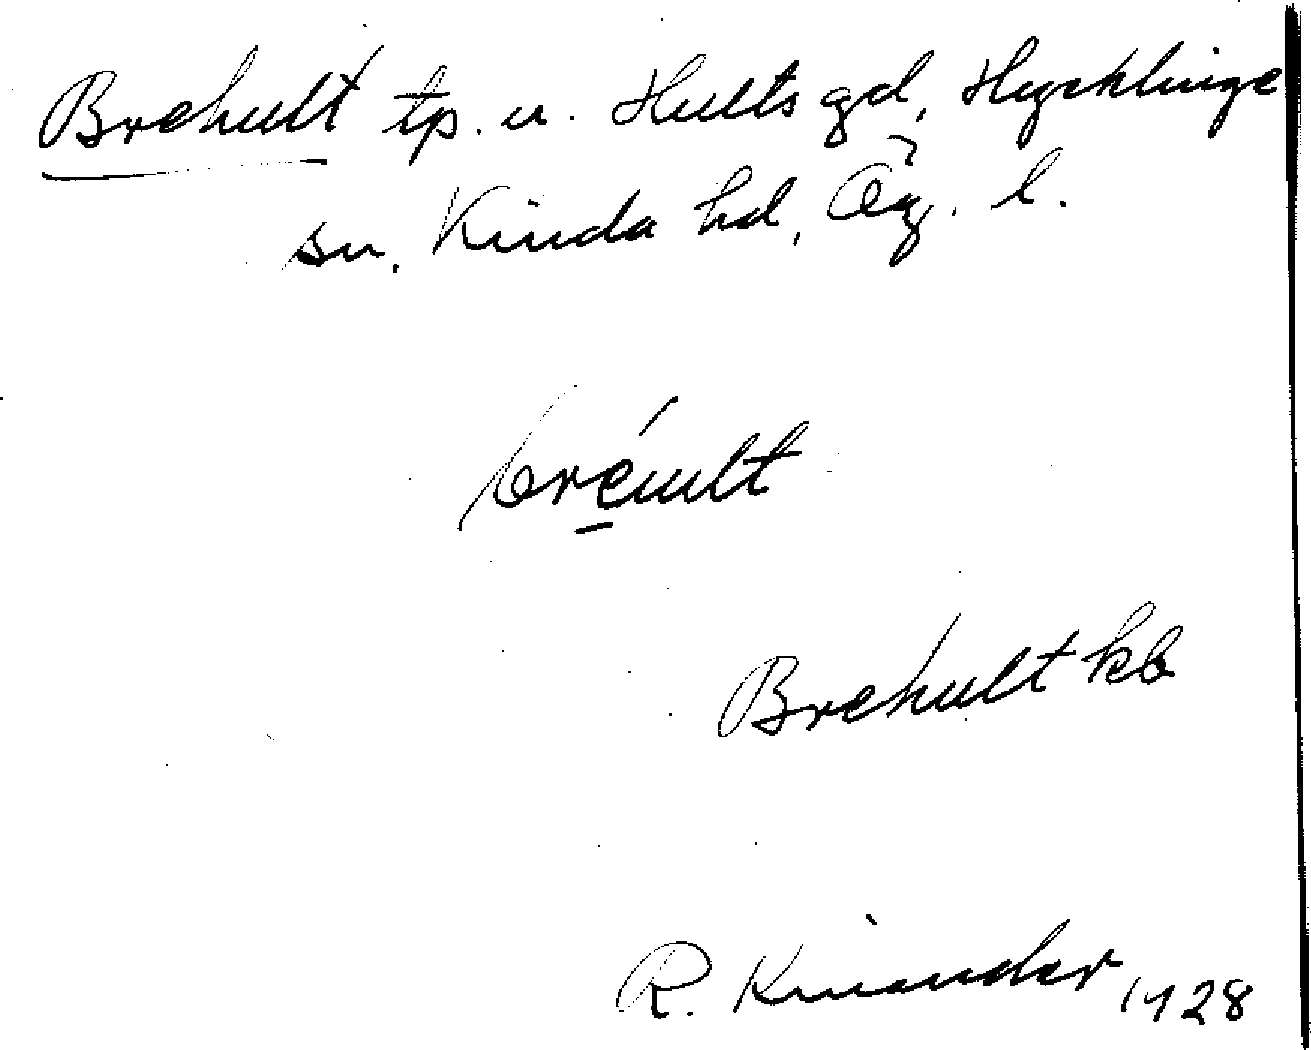 Brehult tp. u. Hults gd, Hycklinge
sn. Kinda hd, Ög. l.
breúlt
Brehult kb
R. Kinander 1928